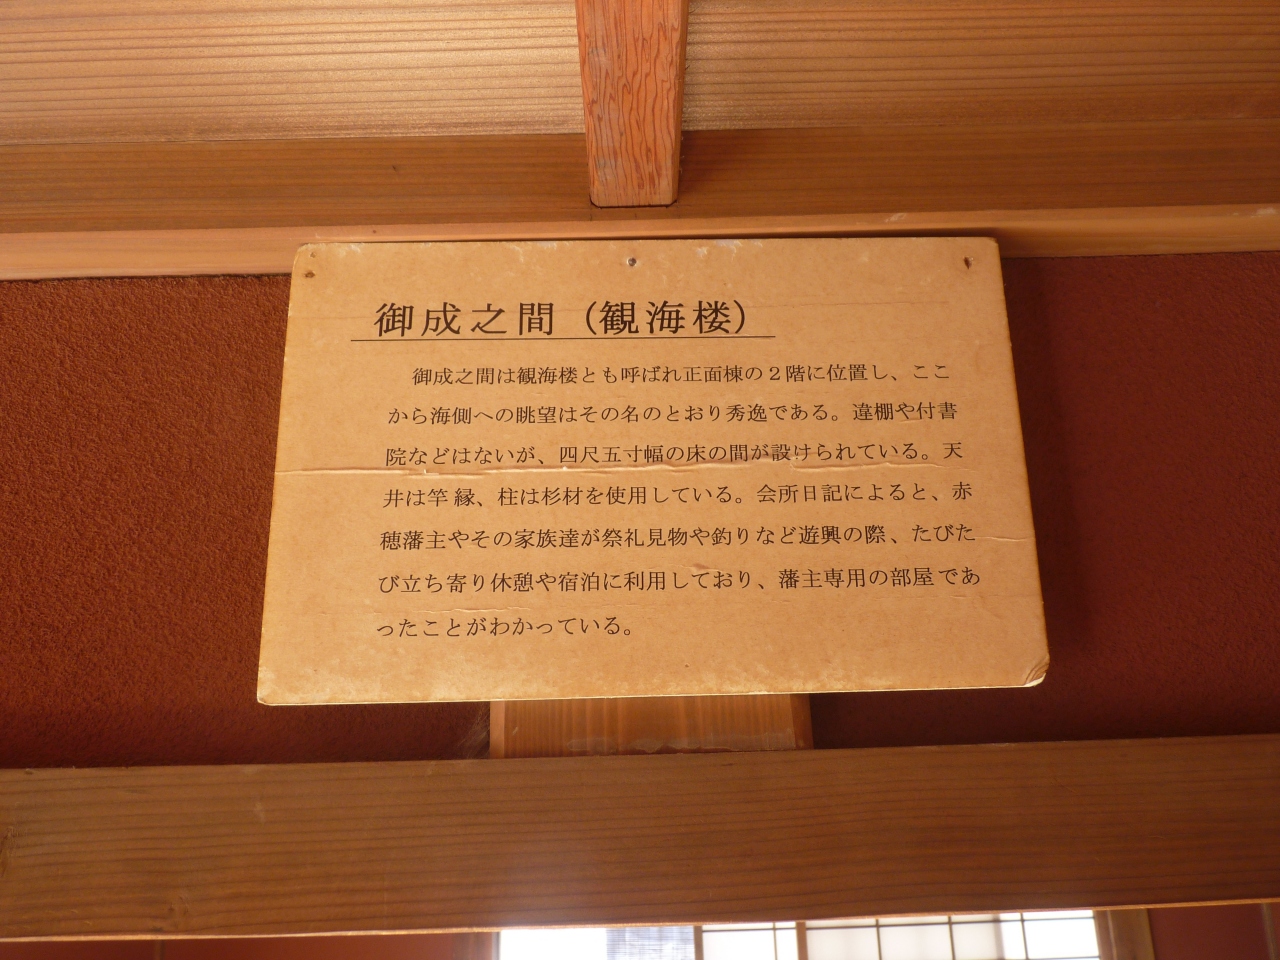 御成之間（観海楼）
御成之間は観海楼とも呼ばれ正面棟の２階に位置し、ここ
から海側への眺望はその名のとおり秀逸である。違棚や付書
院などはないが、四尺五寸幅の床の間が設けられている。天
井は竿縁、柱は杉材を使用している。会所日記によると、赤
穂藩主やその家族達が祭礼見物や釣りなど遊興の際、たびた
び立ち寄り休憩や宿泊に利用しており、藩主専用の部屋であ
ったことがわかっている。